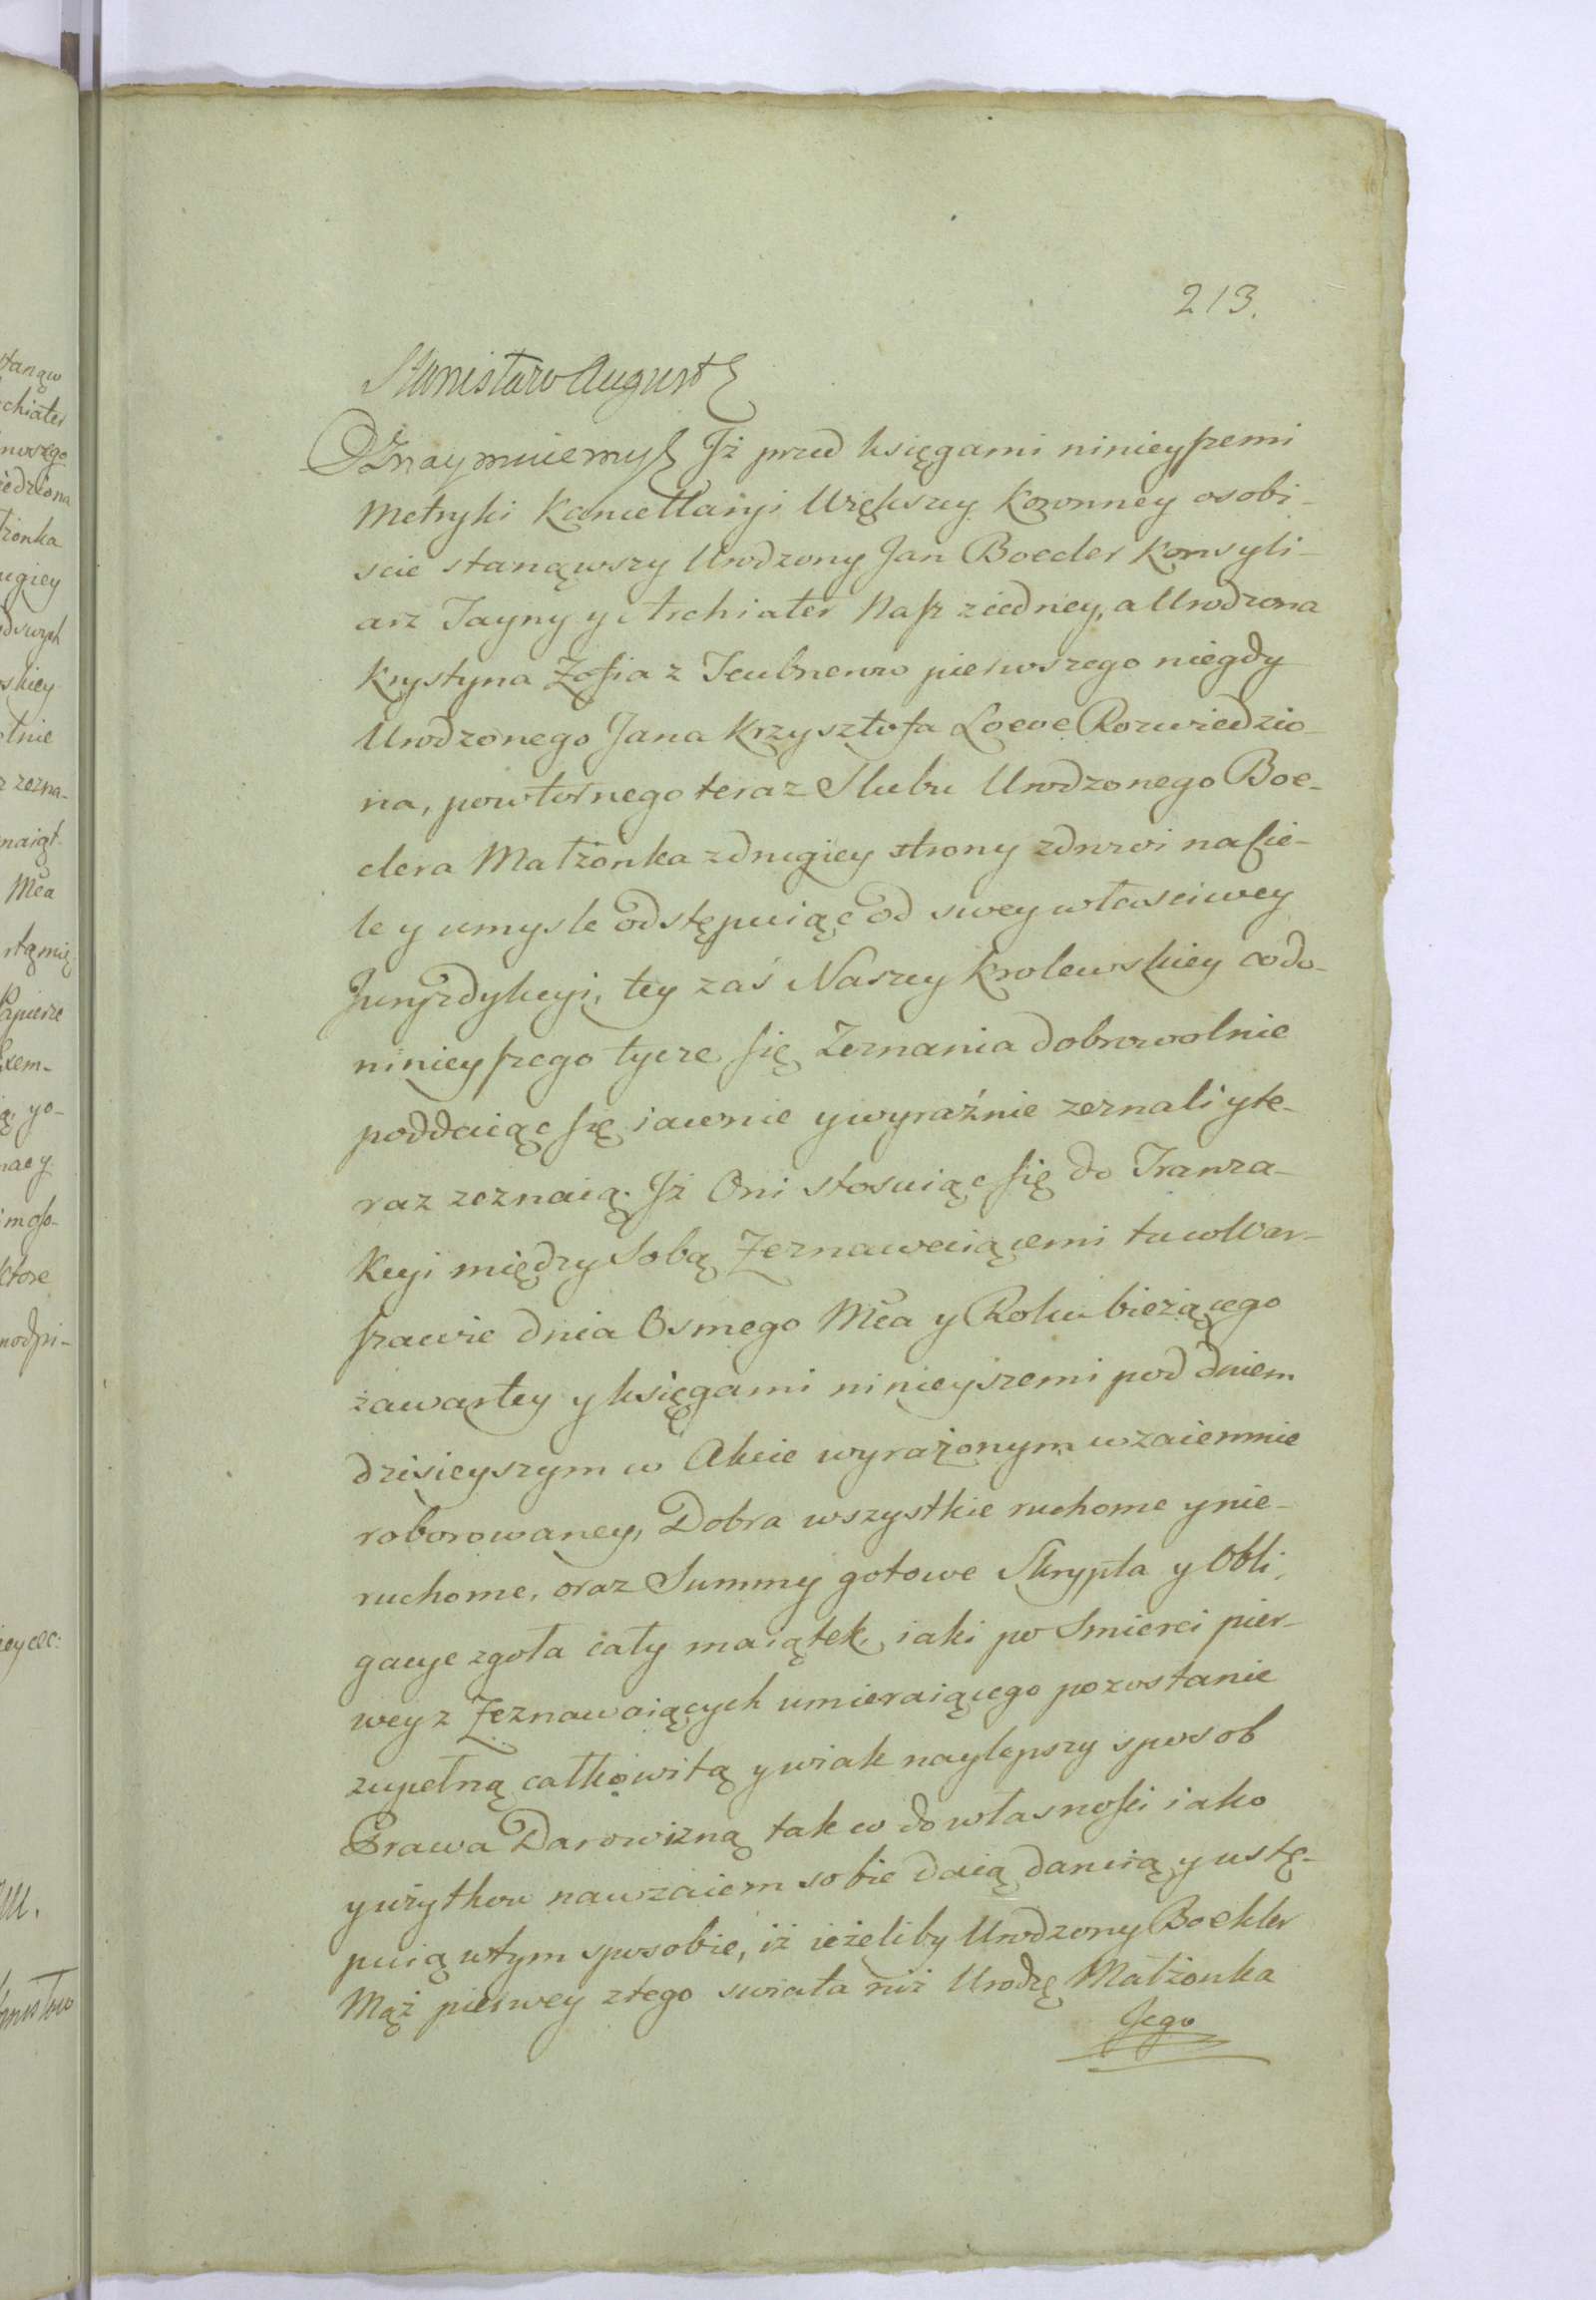 213.
Stanisław August
Oznaymuiemy Jż przed księgami ninieyszemi
Metryki Kancellaryi Większey Koronney osobi-
scie stanąwszy Urodzony Jan Boecler Konsyli-
arz Tayny y Archiater Nasz z iedney, a Urodzona
Krystyna Zofia z Teubnerow pierwszego niegdy
Urodzonego Jana Krzysztofa Loeve Rozwiedzio-
na, powtornego teraz Slubu Urodzonego Boe-
clera Małżonka z drugiey strony zdrowi na cie-
le y umysle odstępuiąc od swey własciwey
Juryzdykcyi, tey zaś Naszey Krolewskiey co do
ninieyszego tycze się Zeznania dobrowolnie
poddaiąc się iawnie y wyraźnie zeznali y te-
raz zeznaią. Jż Oni stosuiąc się do Tranza-
kcyi między Sobą Zeznawaiącemi tu w War-
szawie dnia Osmego Mca y Roku bieżącego
zawartey y księgami ninieyszemi pod dniem
dzisieyszym w Akcie wyrażonym wzaiemnie
roborowaney, Dobra wszystkie ruchome y nie-
ruchome, oraz Summy gotowe Skrypta y Obli-
gacye zgoła cały maiątek iaki po Smierci pier-
wey z Zeznawaiących umieraiącego pozostanie
zupełną całkowitą y wiak naylepszy sposob
Prawa Darowizną tak co do własności iako
y użytkow nawzaiem sobie daią daruią y ustę-
puią w tym sposobie, iż ieżeliby Urodzony Boekler
Mąż pierwey z tego swiata niż Urodzę Małżonka
Jego